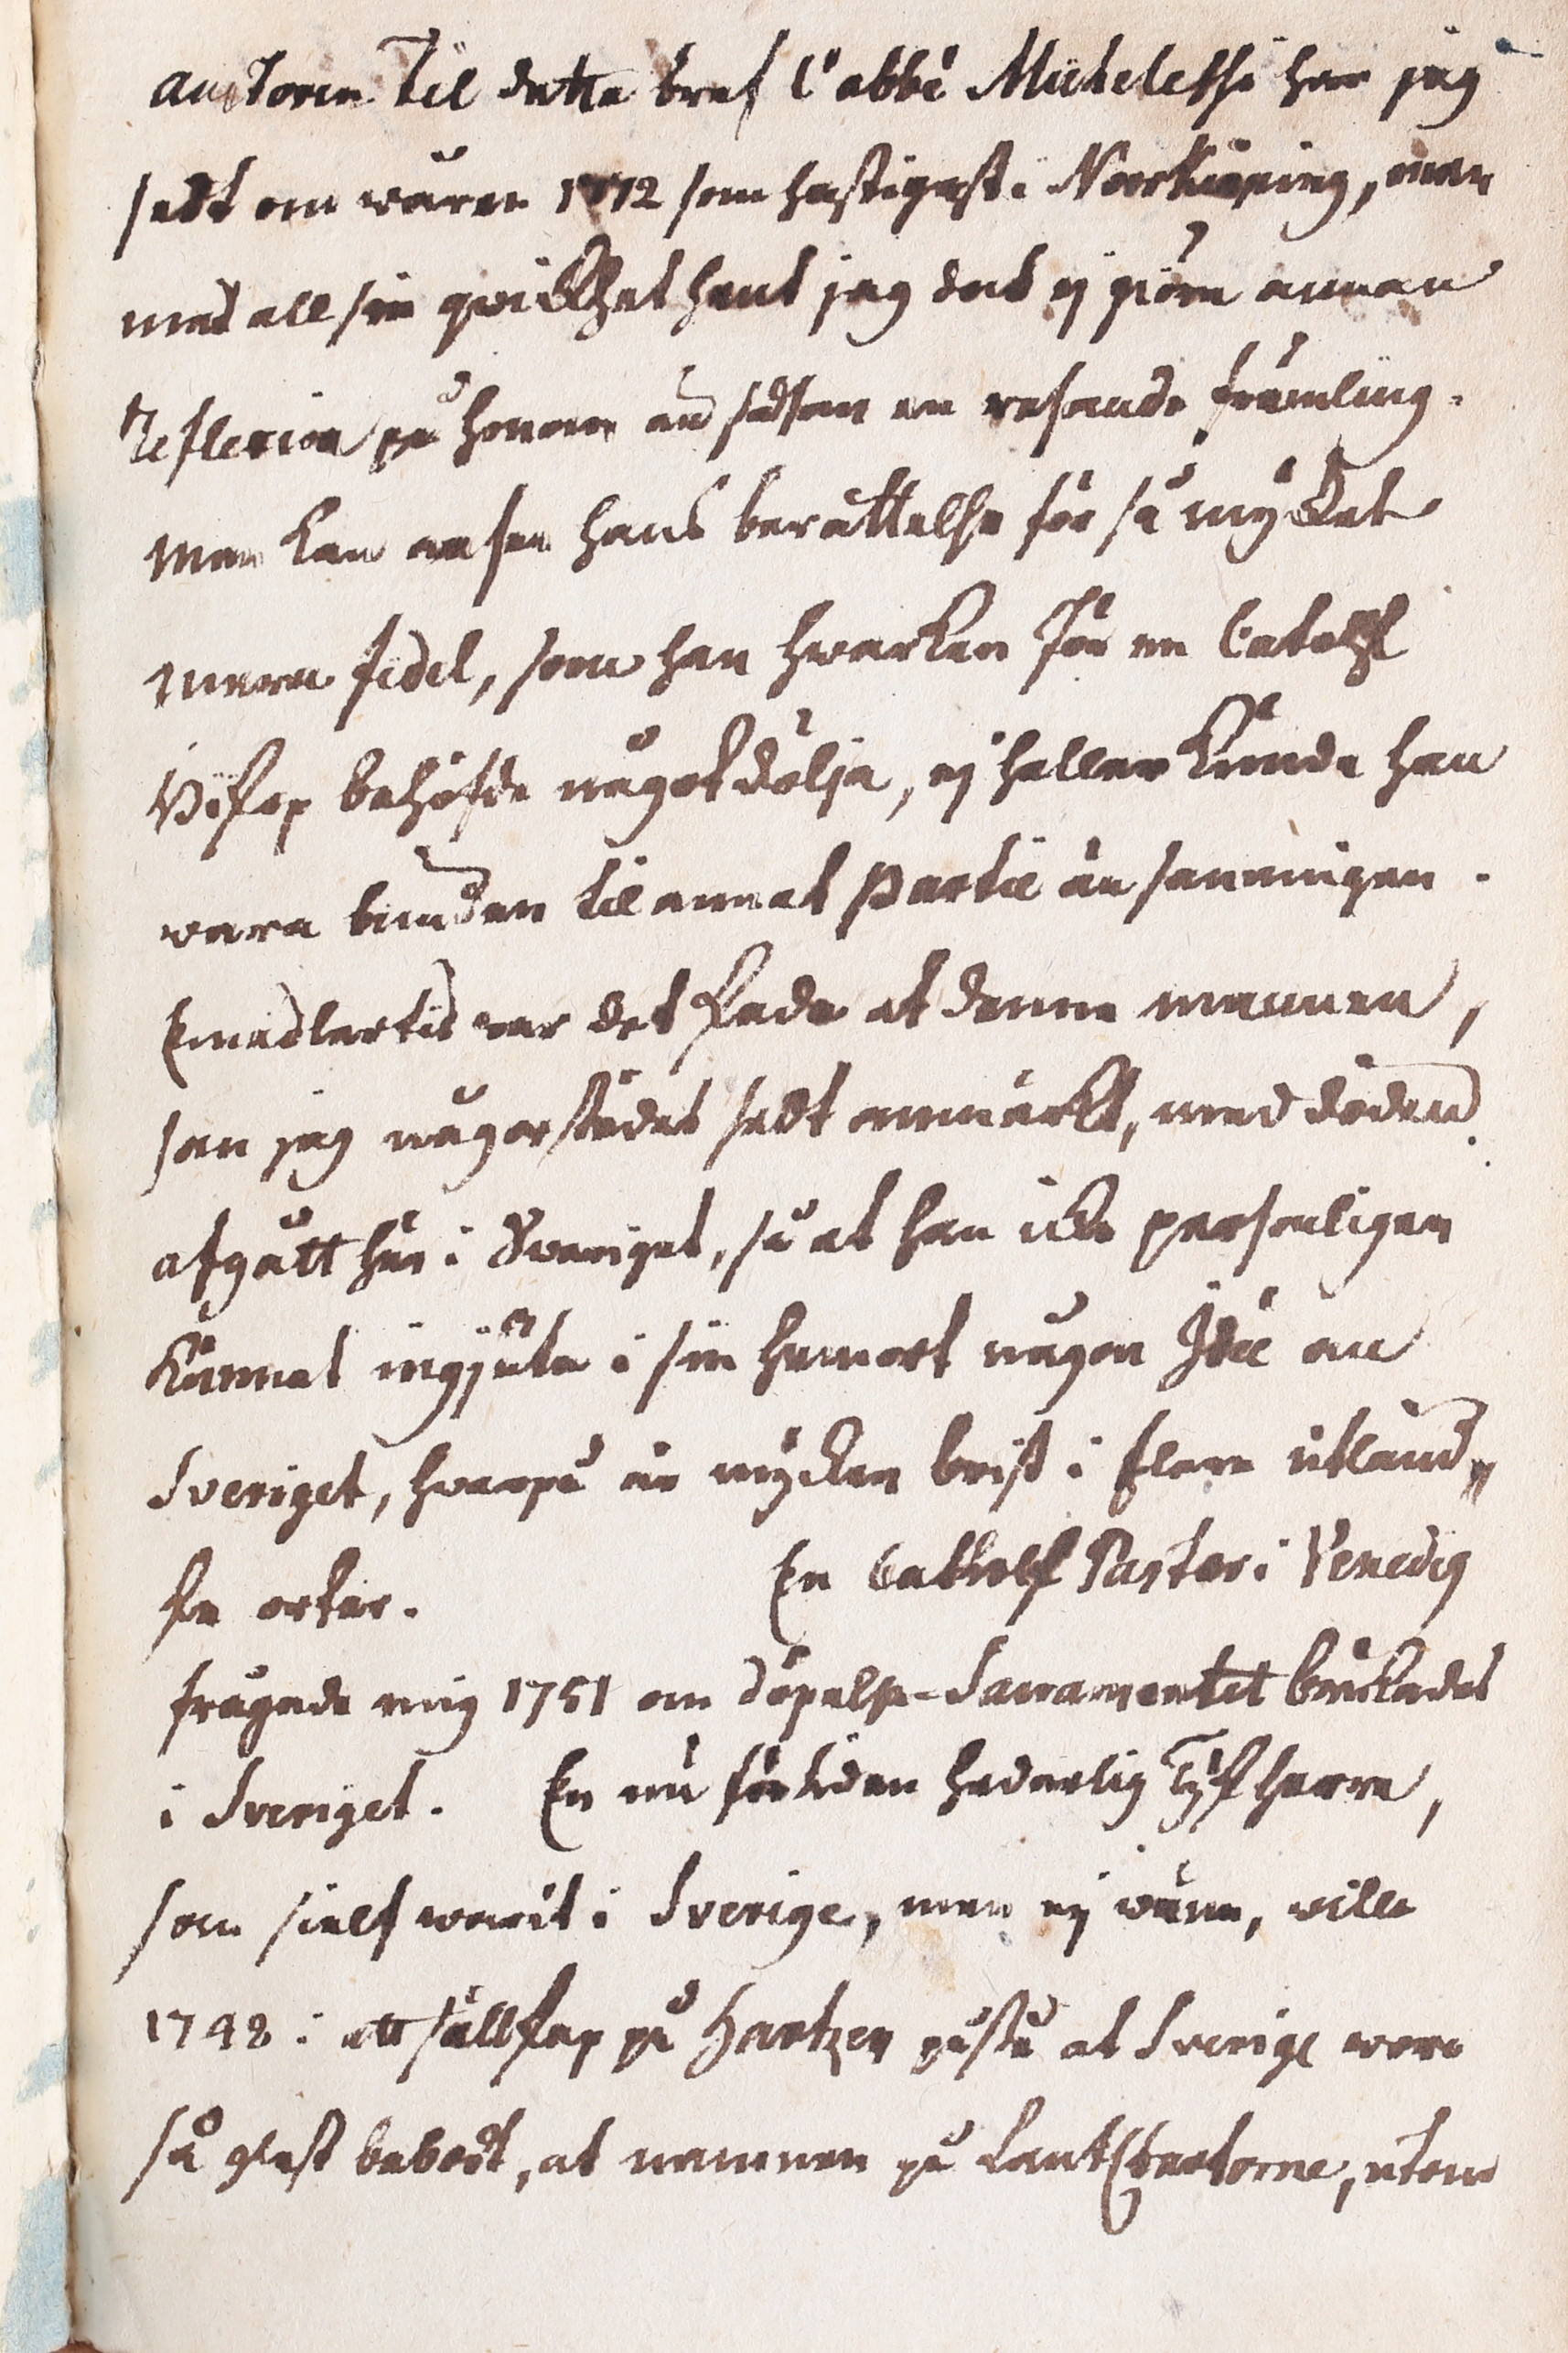 auctoren til detta bref l'abbé Michelessi har jag
sedt om wåren 1772 som hastigast i Norrkiöping, men
med all sin qwickhet hant jag dock ej giöra annan
Reflexion på honom än sådan en resande främling.
Man kan anse hans berättelse för så mycket
mera fidel, som han hwarken för en Catolsk
Biskop behöfde något dölja, ej heller kunde han
wara bunden til annat Partie än sanningen.
Emedlertid war det skada at denne mannen,
som jag någorstädes sedt anmärkt, med döden
afgått här i Sweriget, så at han icke personligen
kunnat ingjuta i sin hemort någon Idée om
Sveriget, hwarpå är mycken brist i flere utländ„
ske orter. En Catholsk Pastor i Venedig
frågade mig 1751 om döpelse-Sacramentet brukades
i Sveriget. En nu förtiden hederlig Tysk herre,
som sielf warit i Sverige, men ej wän, wille
1748 i ett sällskap på Hartzen påstå at Sverige wore
så glest bebodt, at namnen på LantChartorne, utom